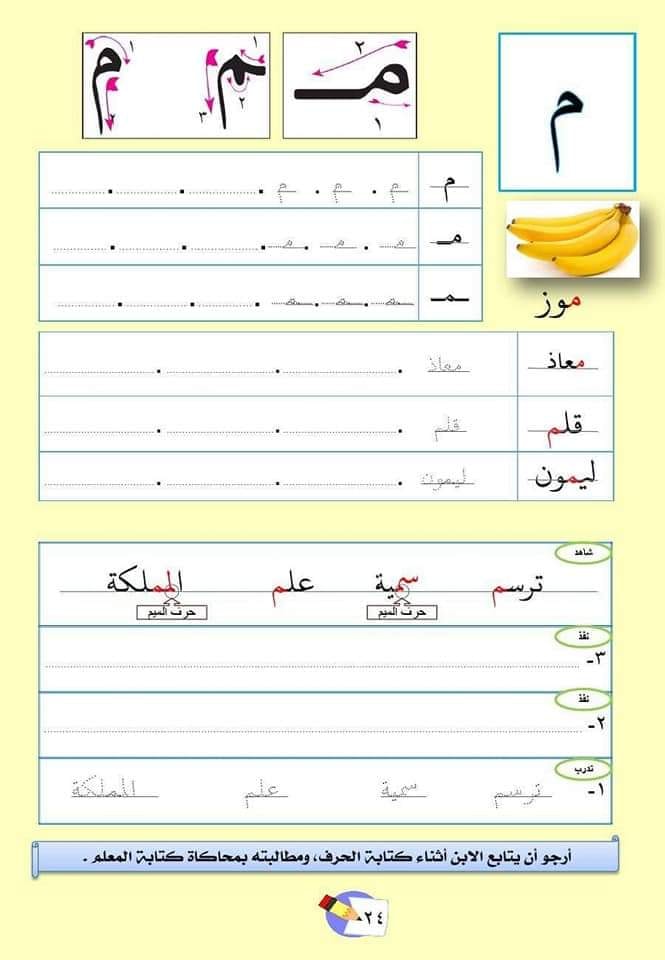 م
١
٢
١
٢
٣
٢
١
موز
م م . م . م
مـ مـ . مـ . مـ
ـمـ ـمـ . ـمـ . ـمـ
معاذ معاذ
قلم قلم
ليمون ليمون
شاهد
ترسم سمية علم المملكة
حرف الميم حرف الميم
نفذ
٣-
نفذ
٢-
تدرب
١- ترسم سمية علم المملكة
أرجو أن يتابع الابن أثناء كتابة الحرف، ومطالبته بمحاكاة كتابة المعلم .
٢٤